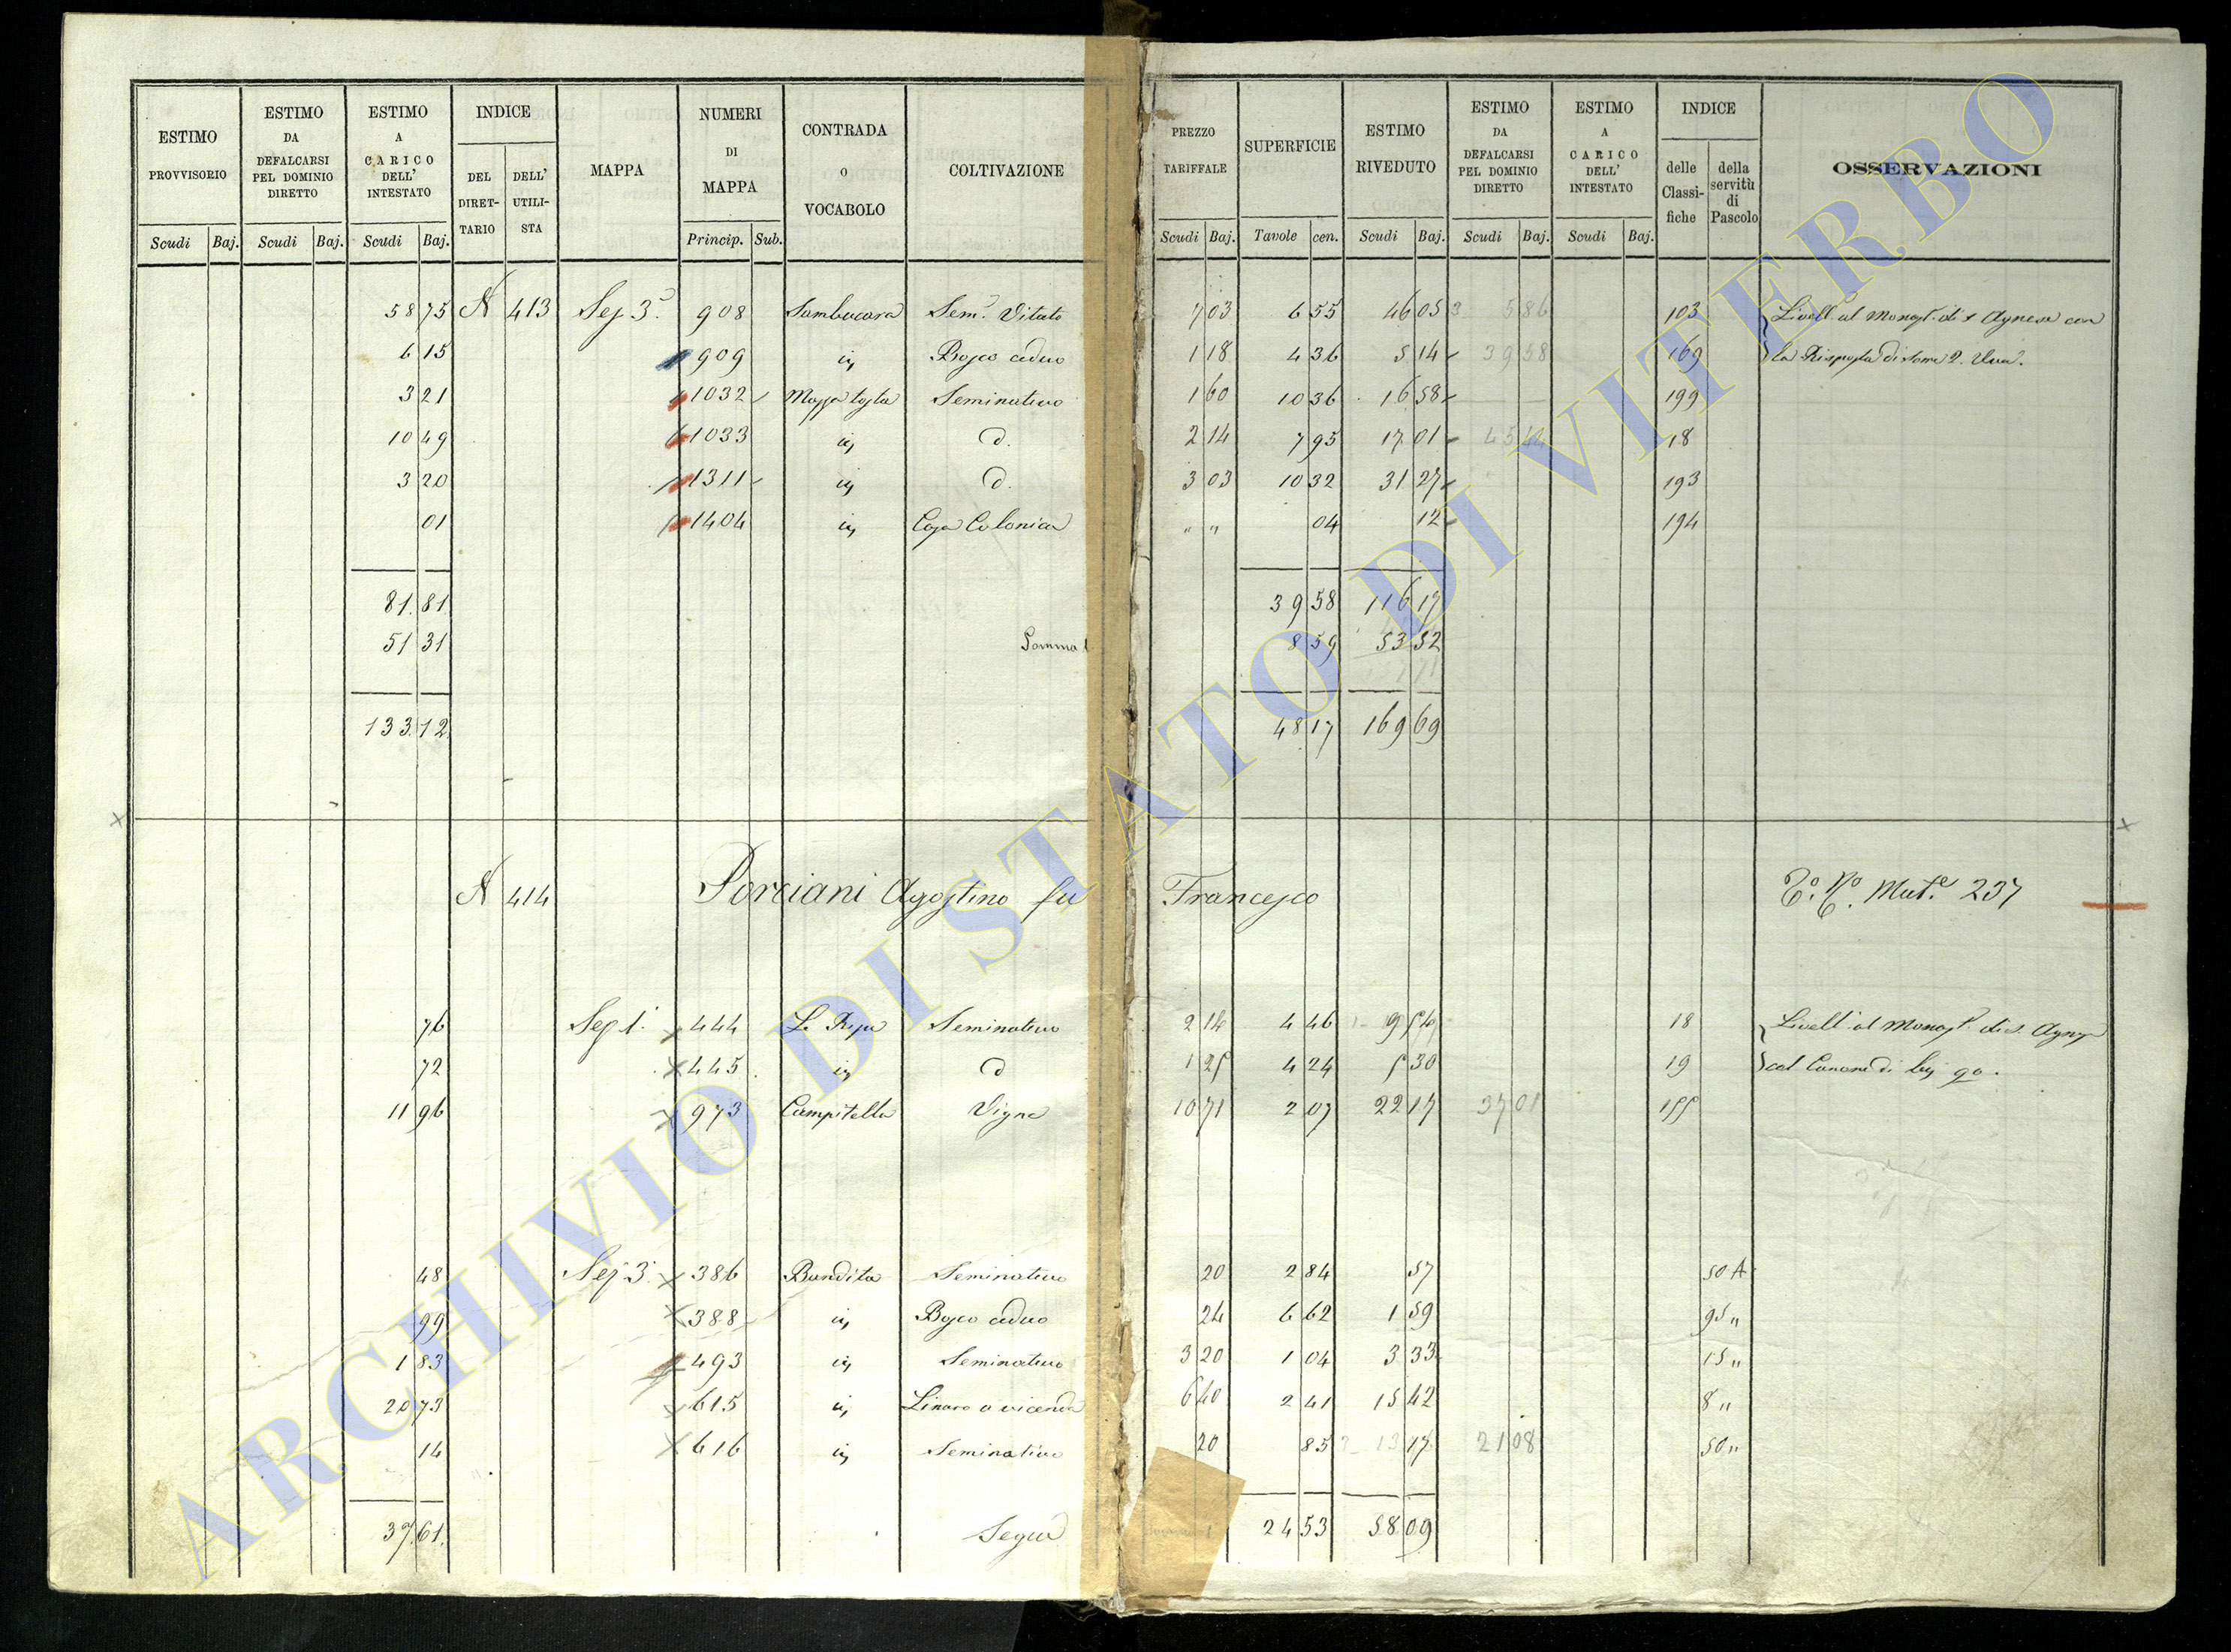 ESTIMO PROVVISORIO | ESTIMO DA DEFALCARSI PEL DOMINIO DIRETTO | ESTIMO A CARICO DELL' INTESTATO | INDICE DEL DIRETTARIO | DELL' UTILISTA | MAPPA | NUMERI DI MAPPA | CONTRADA o VOCABOLO | COLTIVAZIONE | PREZZO TARIFFALE | SUPERFICIE | ESTIMO RIVEDUTO | ESTIMO DA DEFALCARSI PEL DOMINIO DIRETTO | ESTIMO A CARICO DELL' INTESTATO | INDICE delle Classifiche | della servitù di Pascolo | OSSERVAZIONI
Scudi Baj. Scudi Baj. Scudi Baj. Princip. Sub. Scudi Baj. Tavole cen. Scudi Baj. Scudi Baj. Scudi Baj.
58 75 N 413 Sez 3ª 908 Sambucara Sem.º Vitato 7 03 6 55 46 05 5 86 103 Livellº al Monast. di S Agnese con
6 15 909 iv Bosco ceduo 1 18 4 36 5 14 39 58 169 la Risposta di some 2. Uva.
3 21 1032 Mazza tosta Seminativo 1 60 10 36 16 58 199
10 49 1033 iv d. 2 14 7 95 17 01 18
3 20 1311 iv d. 3 03 10 32 31 27 193
01 1404 iv Casa Colonica " " 04 12 194
81. 81. 39 58 116 17
51 31 Somma 8 59 53 52
133. 12. 48 17 169 69
N 414 Porciani Agostino fu Francesco Mut.e 237
76 Sez 1ª 444 Le Ripe Seminativo 2 14 4 46 9 54 18 Livell al Monast. di S. Agnese
72 445 iv d 1 25 4 24 5 30 19 col Canone di bij 90.
11 96 973 Campitella Vigna 10 71 2 07 22 17 37 01 155
48 Sez 3ª 386 Bandita Seminativo 20 2 84 57 50 A
99 388 iv Bosco ceduo 24 6 62 1 59 95 "
1 83 493 iv Seminativo 3 20 1 04 3 33 15 "
20 73 615 iv Linaro a vicenda 6 40 2 41 15 42 8 "
14 616 iv Seminativo 20 85 17 21 08 50 "
37. 61. Segue 24 53 58. 09
ARCHIVIO DI STATO DI VITERBO